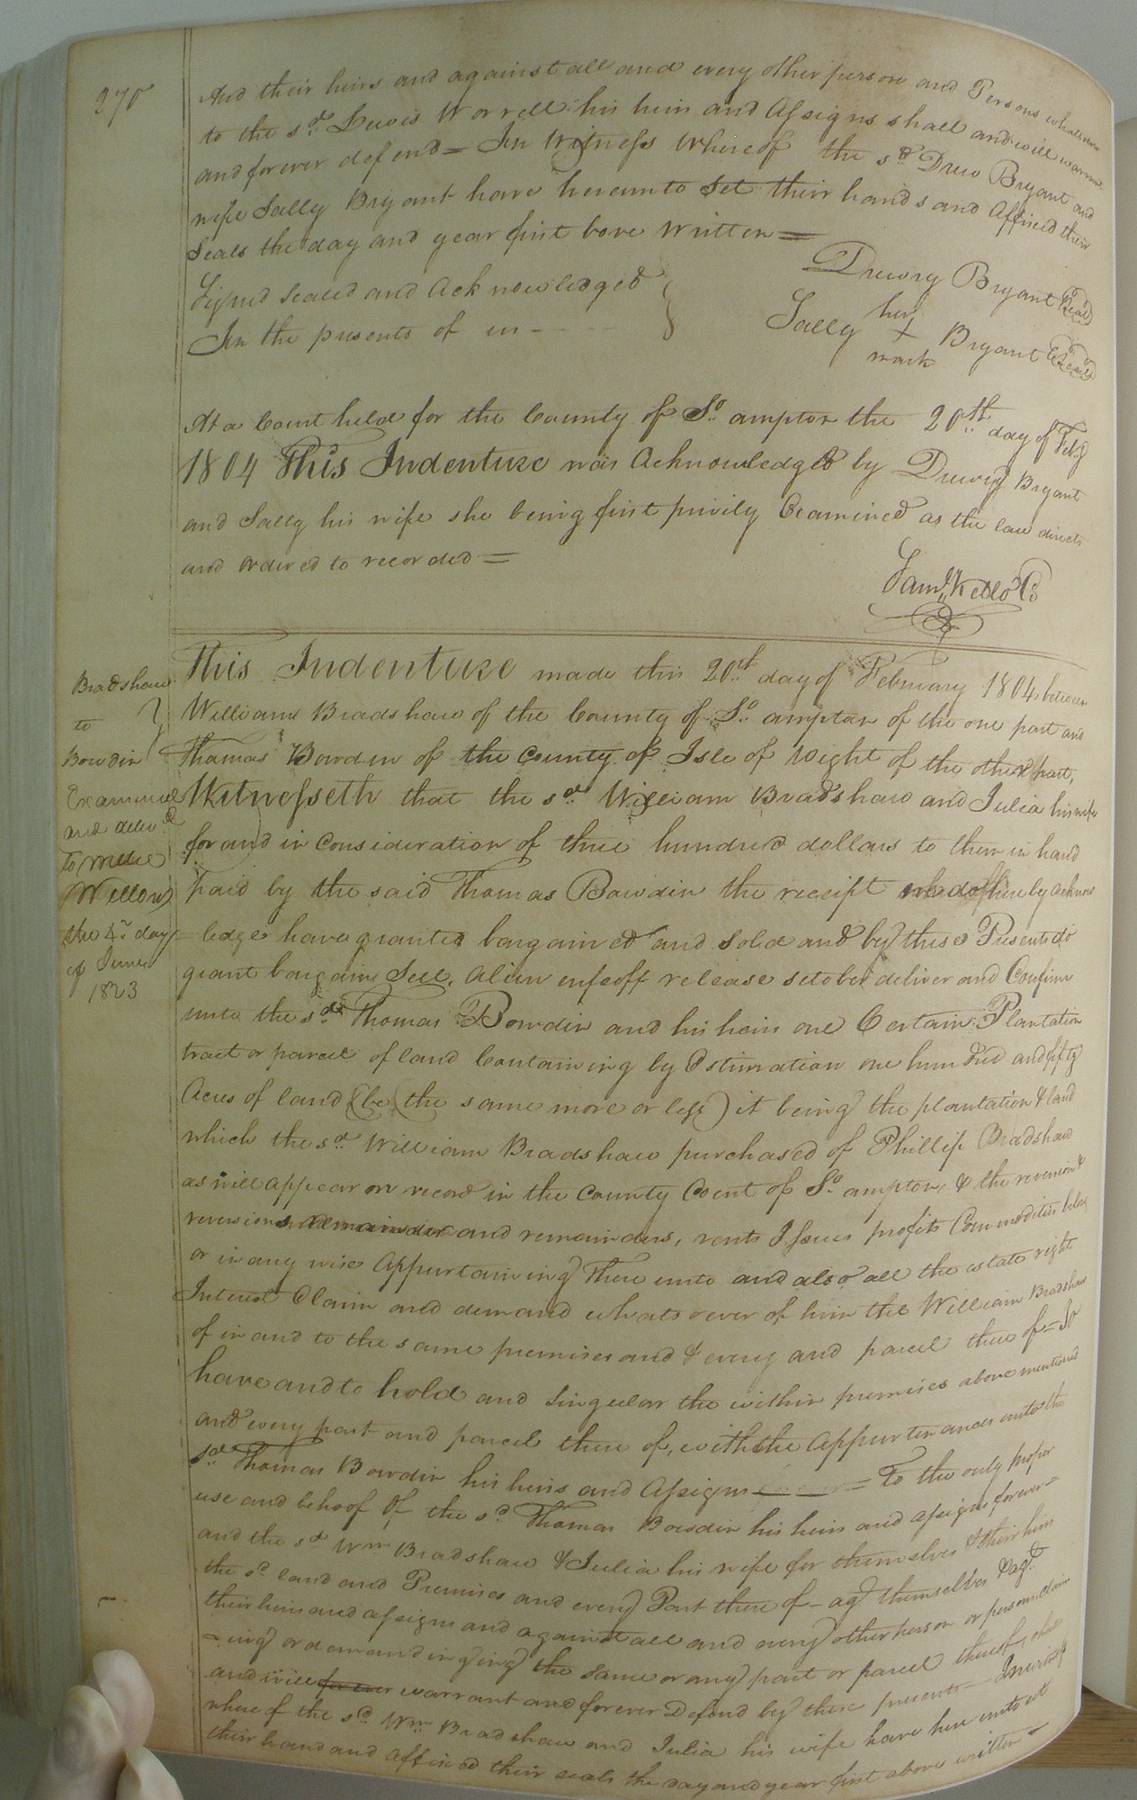 270
And their heirs and against all and every other person and Persons whatsoever
to the sd. Lewis Worrell his heirs and Assigns shall and will warrant
and forever defend = In Witness Whereof the sd Drew Bryant and
wife Sally Bryant have hereunto Set their hands and Affixed their
Seals the day and year first bove Written =
Signd Sealed and Acknowledged
In the presents of us -
Drewry Bryant (Seal)
Sally her X mark Bryant (Seal)
At a Court held for the County of So. ampton the 20th day of Feby
1804 This Indenture was Acknowledged by Drewry Bryant
and Sally his wife she being first privily Examined as the law directs
and ordered to recorded =
Saml. Kello C
Bradshaw
to
Bowdin
Examined
and delivd
to
the 4th day
of June
1823
This Indenture made this 20th day of February 1804 between
William Bradshaw of the County of So. ampton of the one part and
Thomas Bowden of the County of Isle of Wight of the other part,
Witnesseth that the sd William Bradshaw and Julia his wife
for and in Consideration of three hundred dollars to them in hand
Paid by the said Thomas Bowdin the receipt hereby acknow
= ledge have granted bargained and Sold and by these Presents do
grant bargain Sell, alien enfeoff release deliver and Confirm
unto the sd Thomas Bowdin and his heirs one Certain Plantation
tract or parcel of land Containing by Estimation one hundred and fifty
Acres of land (be (the same more or less) it being the plantation & land
which the sd William Bradshaw purchased of Phillip Bradshaw
as will appear on record in the County Court of So. ampton, & the reversion &
reversions remainder and remainders, rents Issues profits Commodities
or in any wise Appurtaining there unto and also all the estate right
Interest Claim and demand whatsoever of him the William Bradshaw
of in and to the same premises and & every and parcel there of = To
have and to hold and Singular the within premises above mentiond
and every part and parcel there of, with the Appurtenances unto the
sd Thomas Bowdin his heirs and Assigns = To the only proper
use and behoof Of the sd Thomas Bowdin his heirs and assigns forever =
and the sd Wm Bradshaw & Julia his wife for themselves & their heirs
the sd land and Premises and every Part there of - agt themselves & agt
their heirs and assigns and against all and every other person or persons claim
= ing or demandinging the same or any part or parcel thereof, shall
and will for ever warrant and forever Defend by these presents - In witness
where of the sd Wm Bradshaw and Julia his wife have here unto set
their hand and Affixed their seals the day and year first above written =